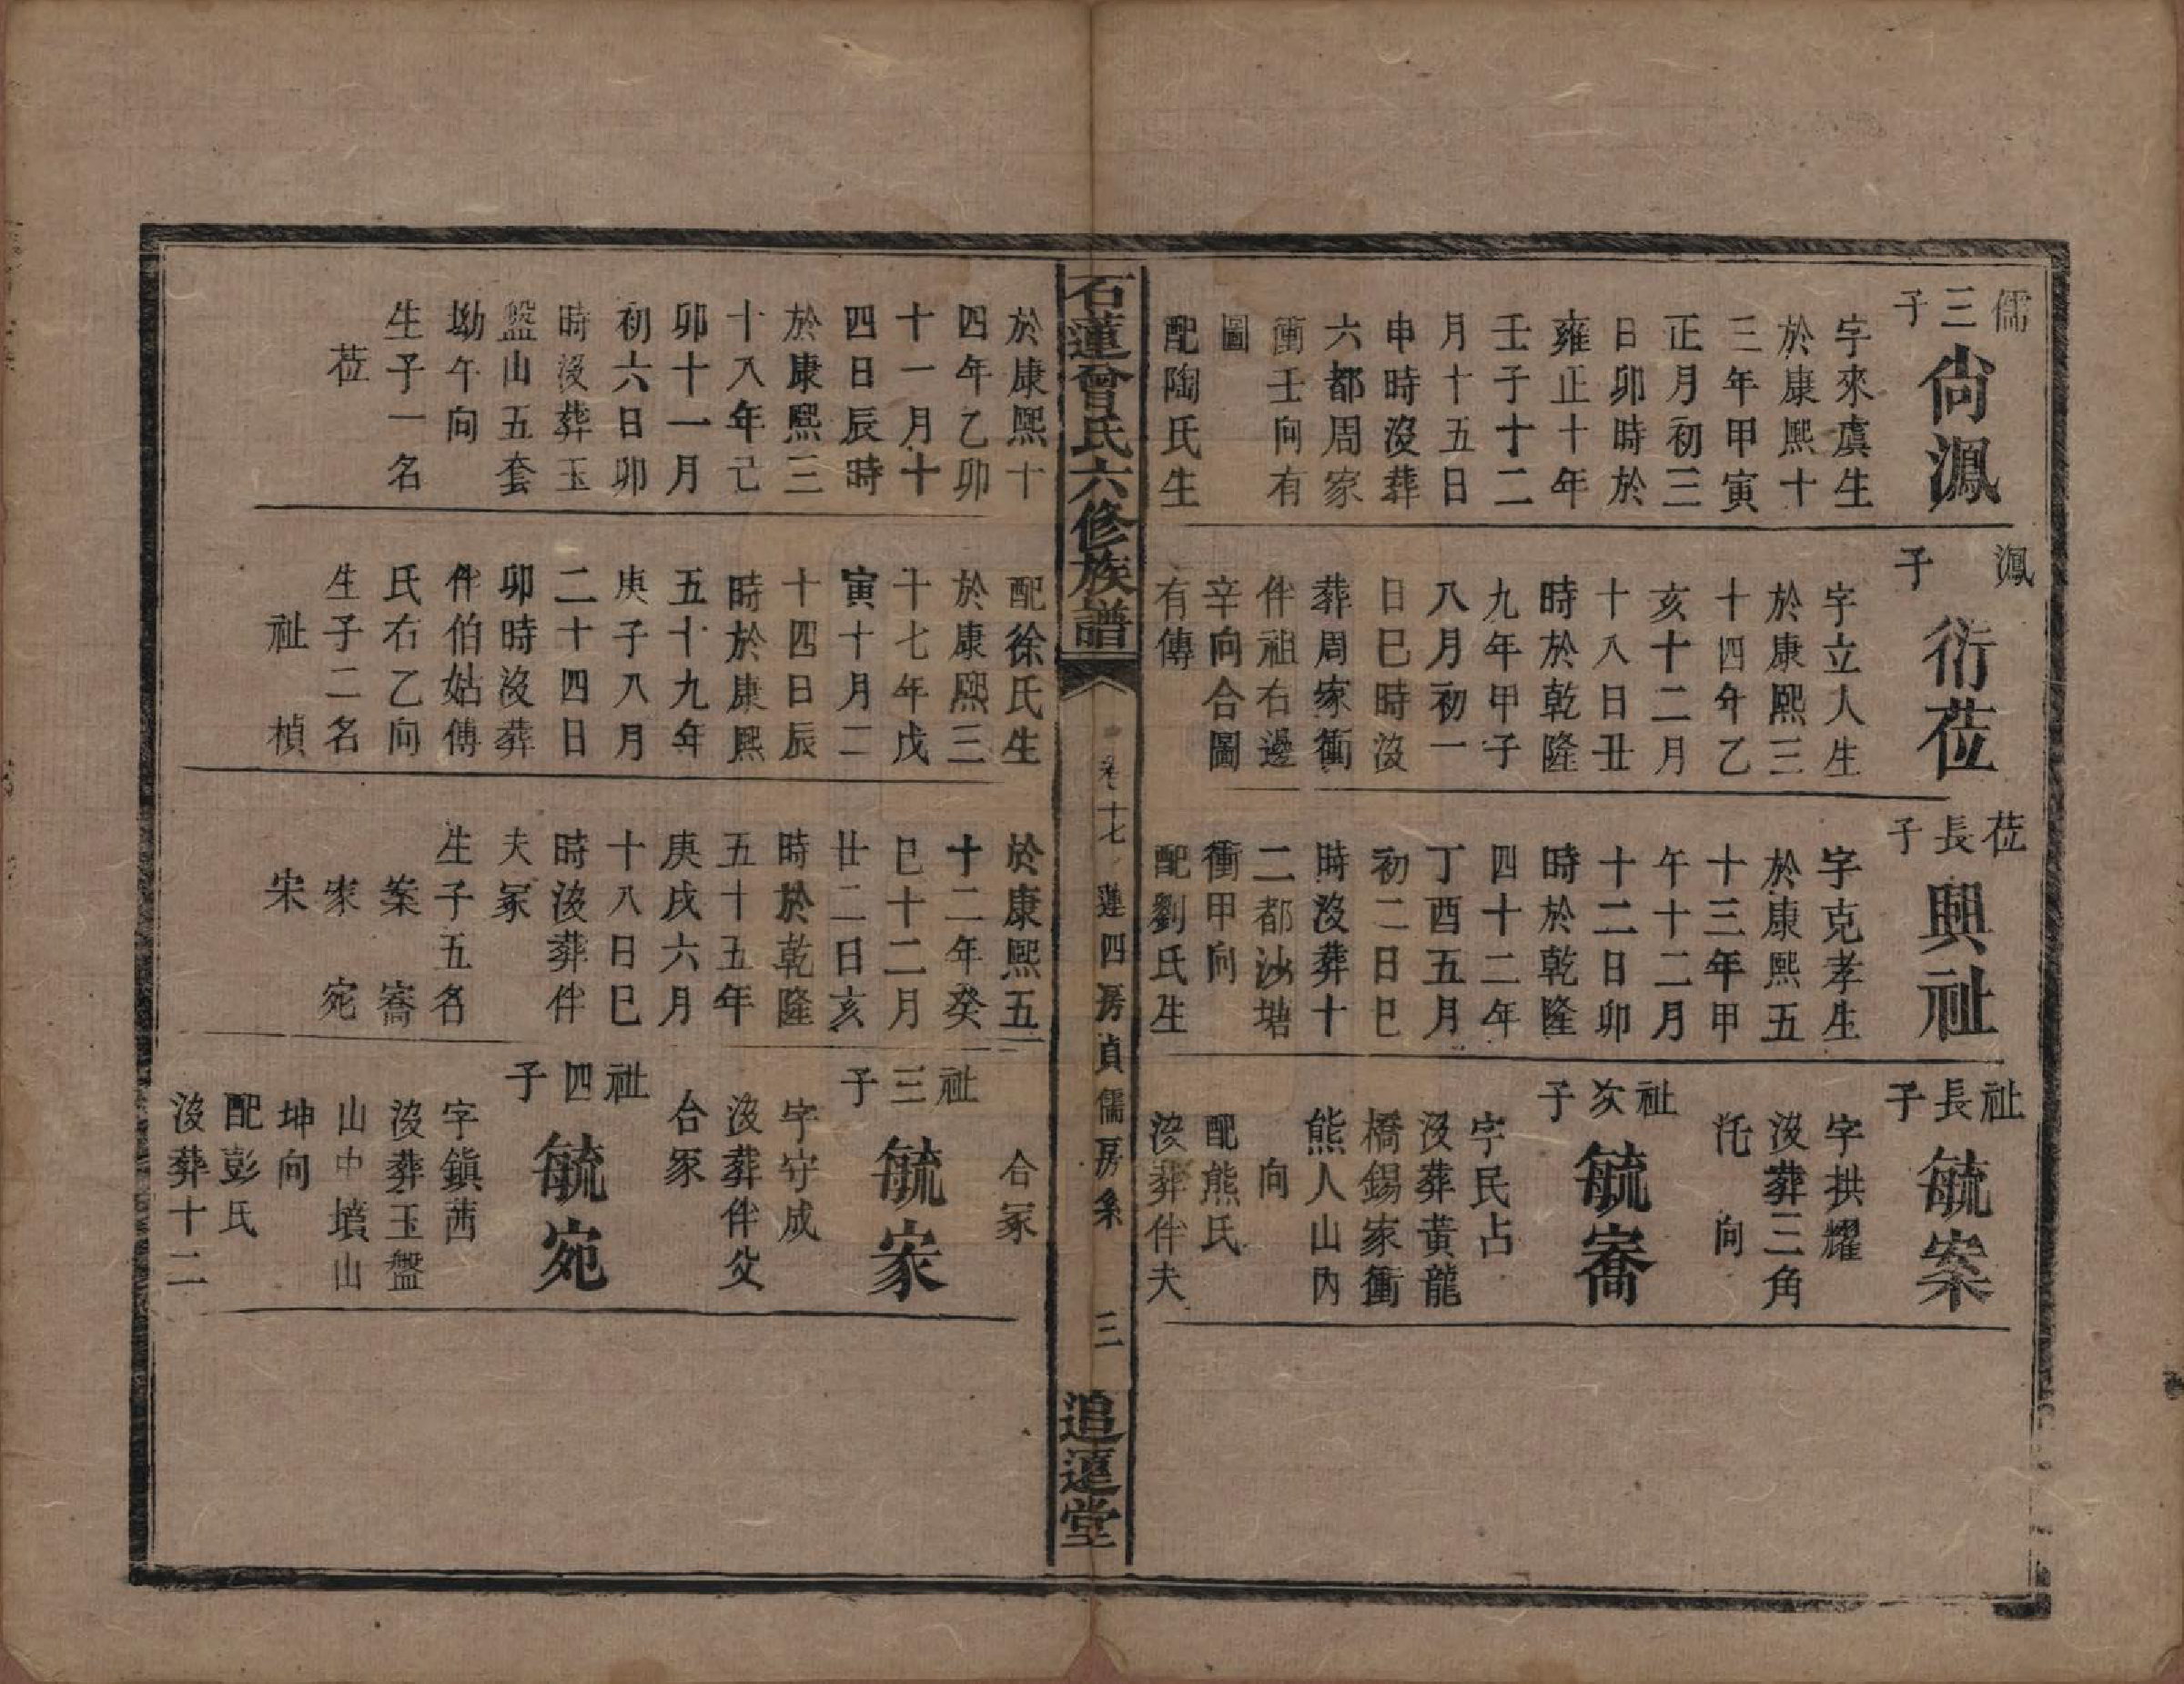 儒三子
尙鳳
字來虞生
於康熙十
三年甲寅
正月初三
日卯時於
雍正十年
壬子十二
月十五日
申時沒葬
六都周家
衝壬向有
圖
配陶氏生
鳳子
衍莅
字立人生
於康熙三
十四年乙
亥十二月
十八日丑
時於乾隆
九年甲子
八月初一
日巳時沒
葬周家衝
伴祖右邊
辛向合圖
有傳
莅長子
興祉
字克孝生
於康熙五
十三年甲
午十二月
十二日卯
時於乾隆
四十二年
丁酉五月
初二日巳
時沒葬十
二都沙塘
衝甲向
配劉氏生
祉長子
毓案
字拱耀
沒葬三角
坉向
祉次子
毓寯
字民占
沒葬黃龍
橋錫家衝
熊人山內
向
配熊氏
沒葬伴夫
石蓮曾氏六修族譜
卷十七
蓮四房貞儒房系
三
追蓮堂
於康熙十
四年乙卯
十一月十
四日辰時
於康熙三
十八年己
卯十一月
初六日卯
時沒葬玉
盤山五套
坳午向
生子一名
莅
配徐氏生
於康熙三
十七年戊
寅十月二
十四日辰
時於康熙
五十九年
庚子八月
二十四日
卯時沒葬
伴伯姑傅
氏右乙向
生子二名
祉 楨
於康熙五
十二年癸
巳十二月
廿二日亥
時於乾隆
五十五年
庚戌六月
十八日巳
時沒葬伴
夫冢
生子五名
案 寯
家 宛
宋
合冢
祉三子
毓家
字守成
沒葬伴父
合冢
祉四子
毓宛
字鎭茜
沒葬玉盤
山中墳山
坤向
配彭氏
沒葬十二